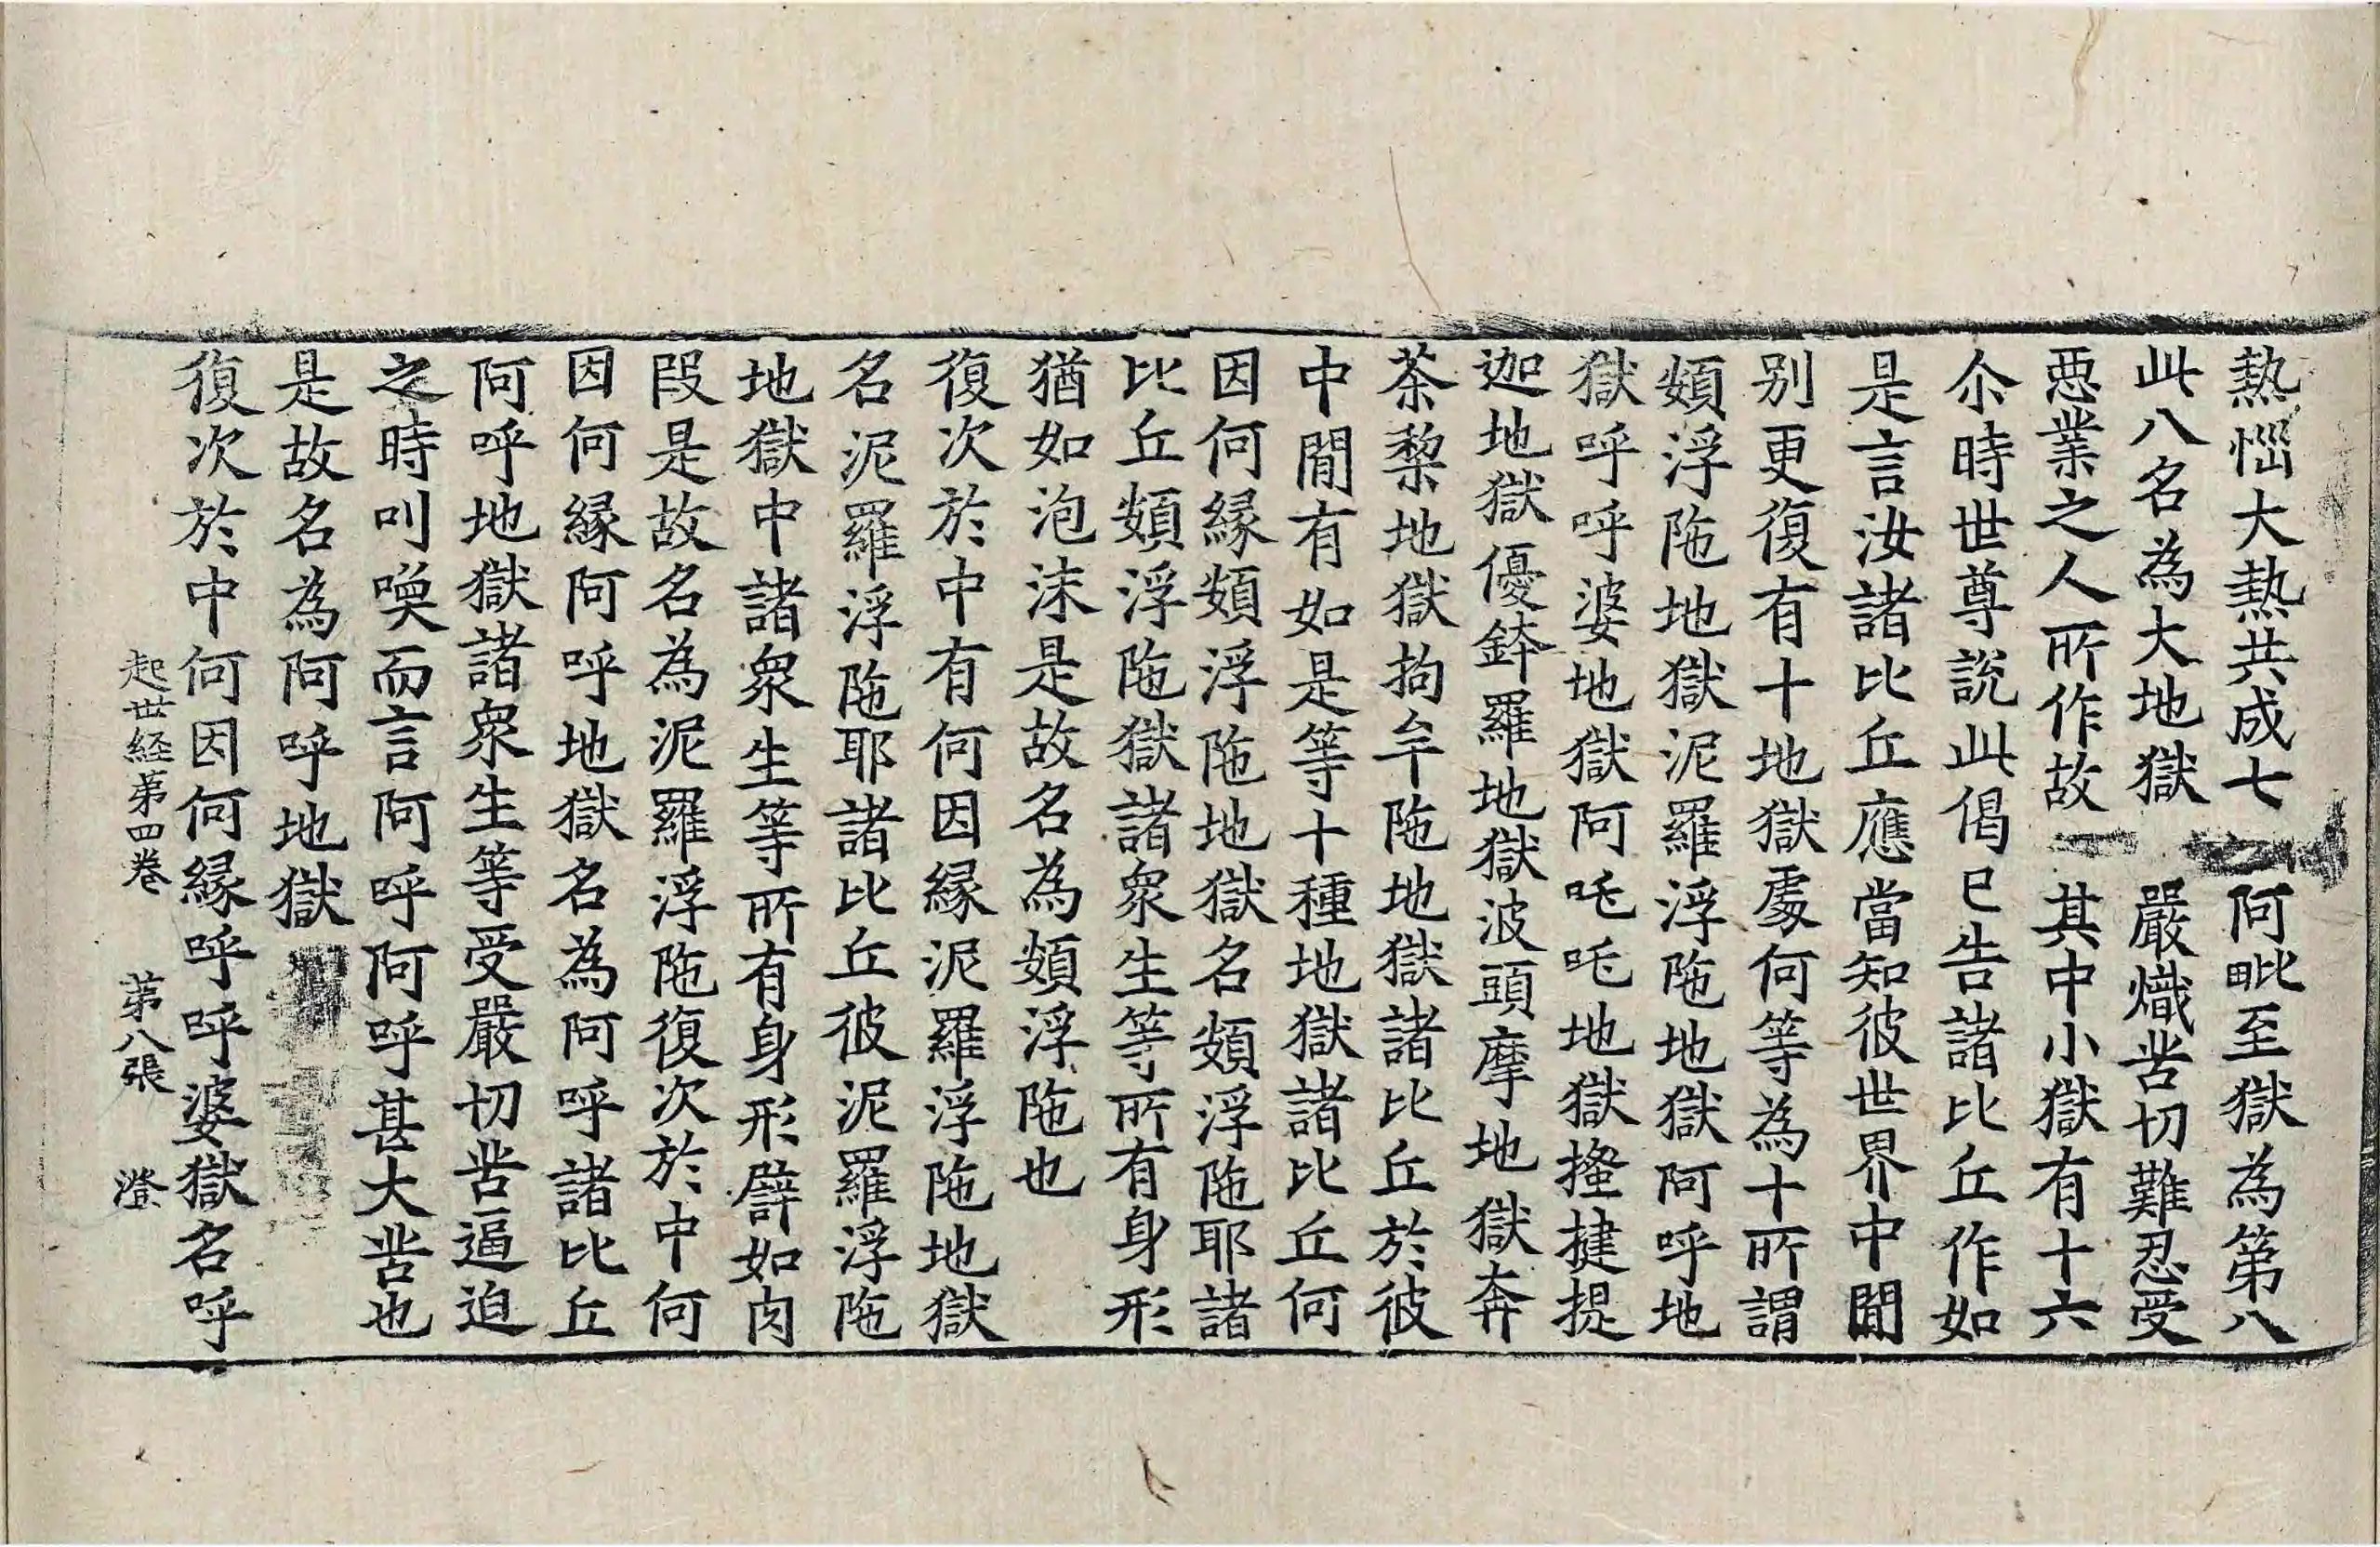 熱惱大熱共成七　阿毗至獄為第八
此八名為大地獄　嚴熾苦切難忍受
惡業之人所作故　其中小獄有十六
尒時世尊說此偈已告諸比丘作如
是言汝諸比丘應當知彼世界中間
別更復有十地獄處何等為十所謂
頞浮陁地獄泥羅浮陁地獄阿呼地
獄呼呼婆地獄阿吒吒地獄搔揵提
迦地獄優鉢羅地獄波頭摩地獄奔
茶梨地獄拘牟陁地獄諸比丘於彼
中間有如是等十種地獄諸比丘何
因何緣頞浮陁地獄名頞浮陁耶諸
比丘頞浮陁獄諸眾生等所有身形
猶如泡沫是故名為頞浮陁也
復次於中有何因緣泥羅浮陁地獄
名泥羅浮陁耶諸比丘彼泥羅浮陁
地獄中諸眾生等所有身形譬如肉
段是故名為泥羅浮陁復次於中何
因何緣阿呼地獄名為阿呼諸比丘
阿呼地獄諸眾生等受嚴切苦逼迫
之時叫喚而言阿呼阿呼甚大苦也
是故名為阿呼地獄
復次於中何因何緣呼呼婆獄名呼
起世経第四卷　第八張　澄